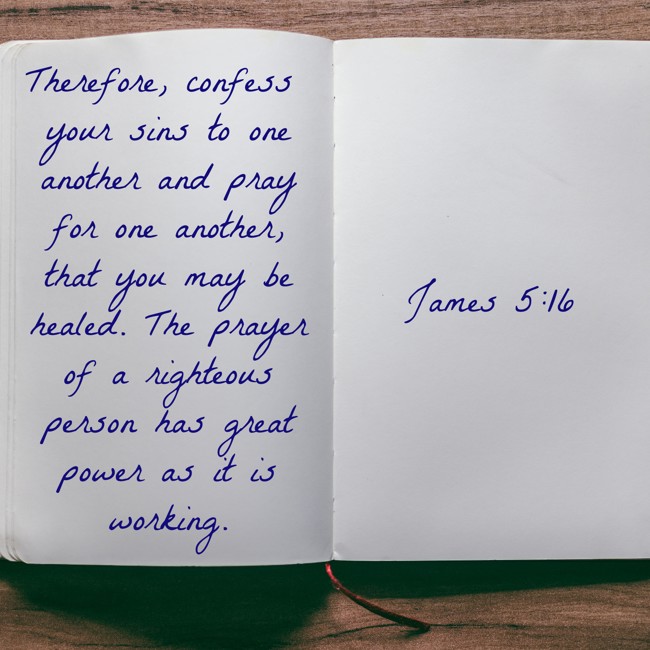 Therefore, confess
your sins to one
another and pray
for one another,
that you may be
healed. The prayer
of a righteous
person has great
power as it is
working.
James 5:16